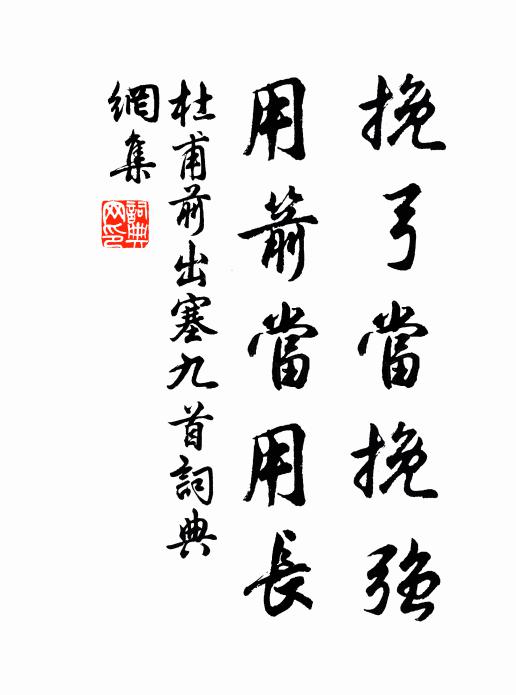 挽弓當挽強
用箭當用長
杜甫前出塞九首詞典
網集
詞典網印